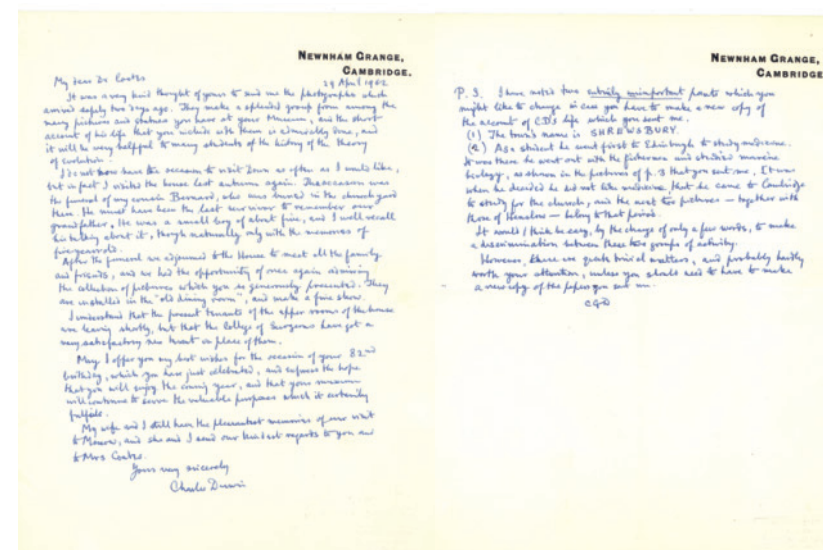 NEWNHAM GRANGE,
CAMBRIDGE.
29 April 1962
My dear Dr Coates
It was a very kind thought of yours to send me the photographs which
arrived safely two days ago. They make a splendid group from among the
many pictures and statues you have at your Museum, and the short
account of his life that you include with them is admirably done, and
it will be very helpful to many students of the history of the theory
of evolution.
I do not now have the occasion to visit Down as often as I would like,
but in fact I visited the house last autumn again. The occasion was
the funeral of my cousin Bernard, who was buried in the churchyard
there. He must have been the last survivor to remember our
grandfather. He was a small boy of about five, and I well recall
his talking about it, though naturally only with the memories of
five years old.
After the funeral we adjourned to the House to meet all the family
and friends, and we had the opportunity of once again admiring
the collection of pictures which you so generously presented. They
are installed in the "old dining room", and make a fine show.
I understand that the present tenants of the upper rooms of the house
are leaving shortly, but that the College of Surgeons have got a
very satisfactory new tenant in place of them.
May I offer you my best wishes for the occasion of your 82nd
birthday, which you have just celebrated, and express the hope
that you will enjoy the coming year, and that your museum
will continue to serve the valuable purposes which it certainly
fulfils.
My wife and I still have the pleasantest memories of our visit
to Moscow, and she and I send our kindest regards to you and
to Mrs Coates.
Yours very sincerely
Charles Darwin
NEWNHAM GRANGE,
CAMBRIDGE
P.S. I have noted two entirely unimportant points which you
might like to change in case you have to make a new copy of
the account of CD's life which you sent me.
(1) The town's name is SHREWSBURY.
(2) As a student he went first to Edinburgh to study medicine.
It was there he went out with the fishermen and studied marine
biology, as shown in the pictures of p. 3 that you sent me. It was
when he decided he did not like medicine, that he came to Cambridge
to study for the church, and the next two pictures — together with
those of Henslow — belong to that period.
It would I think be easy, by the change of only a few words, to make
a discrimination between these two groups of activity.
However, these are quite trivial matters, and probably hardly
worth your attention, unless you should need to have to make
a new copy of the paper you sent me.
CGD